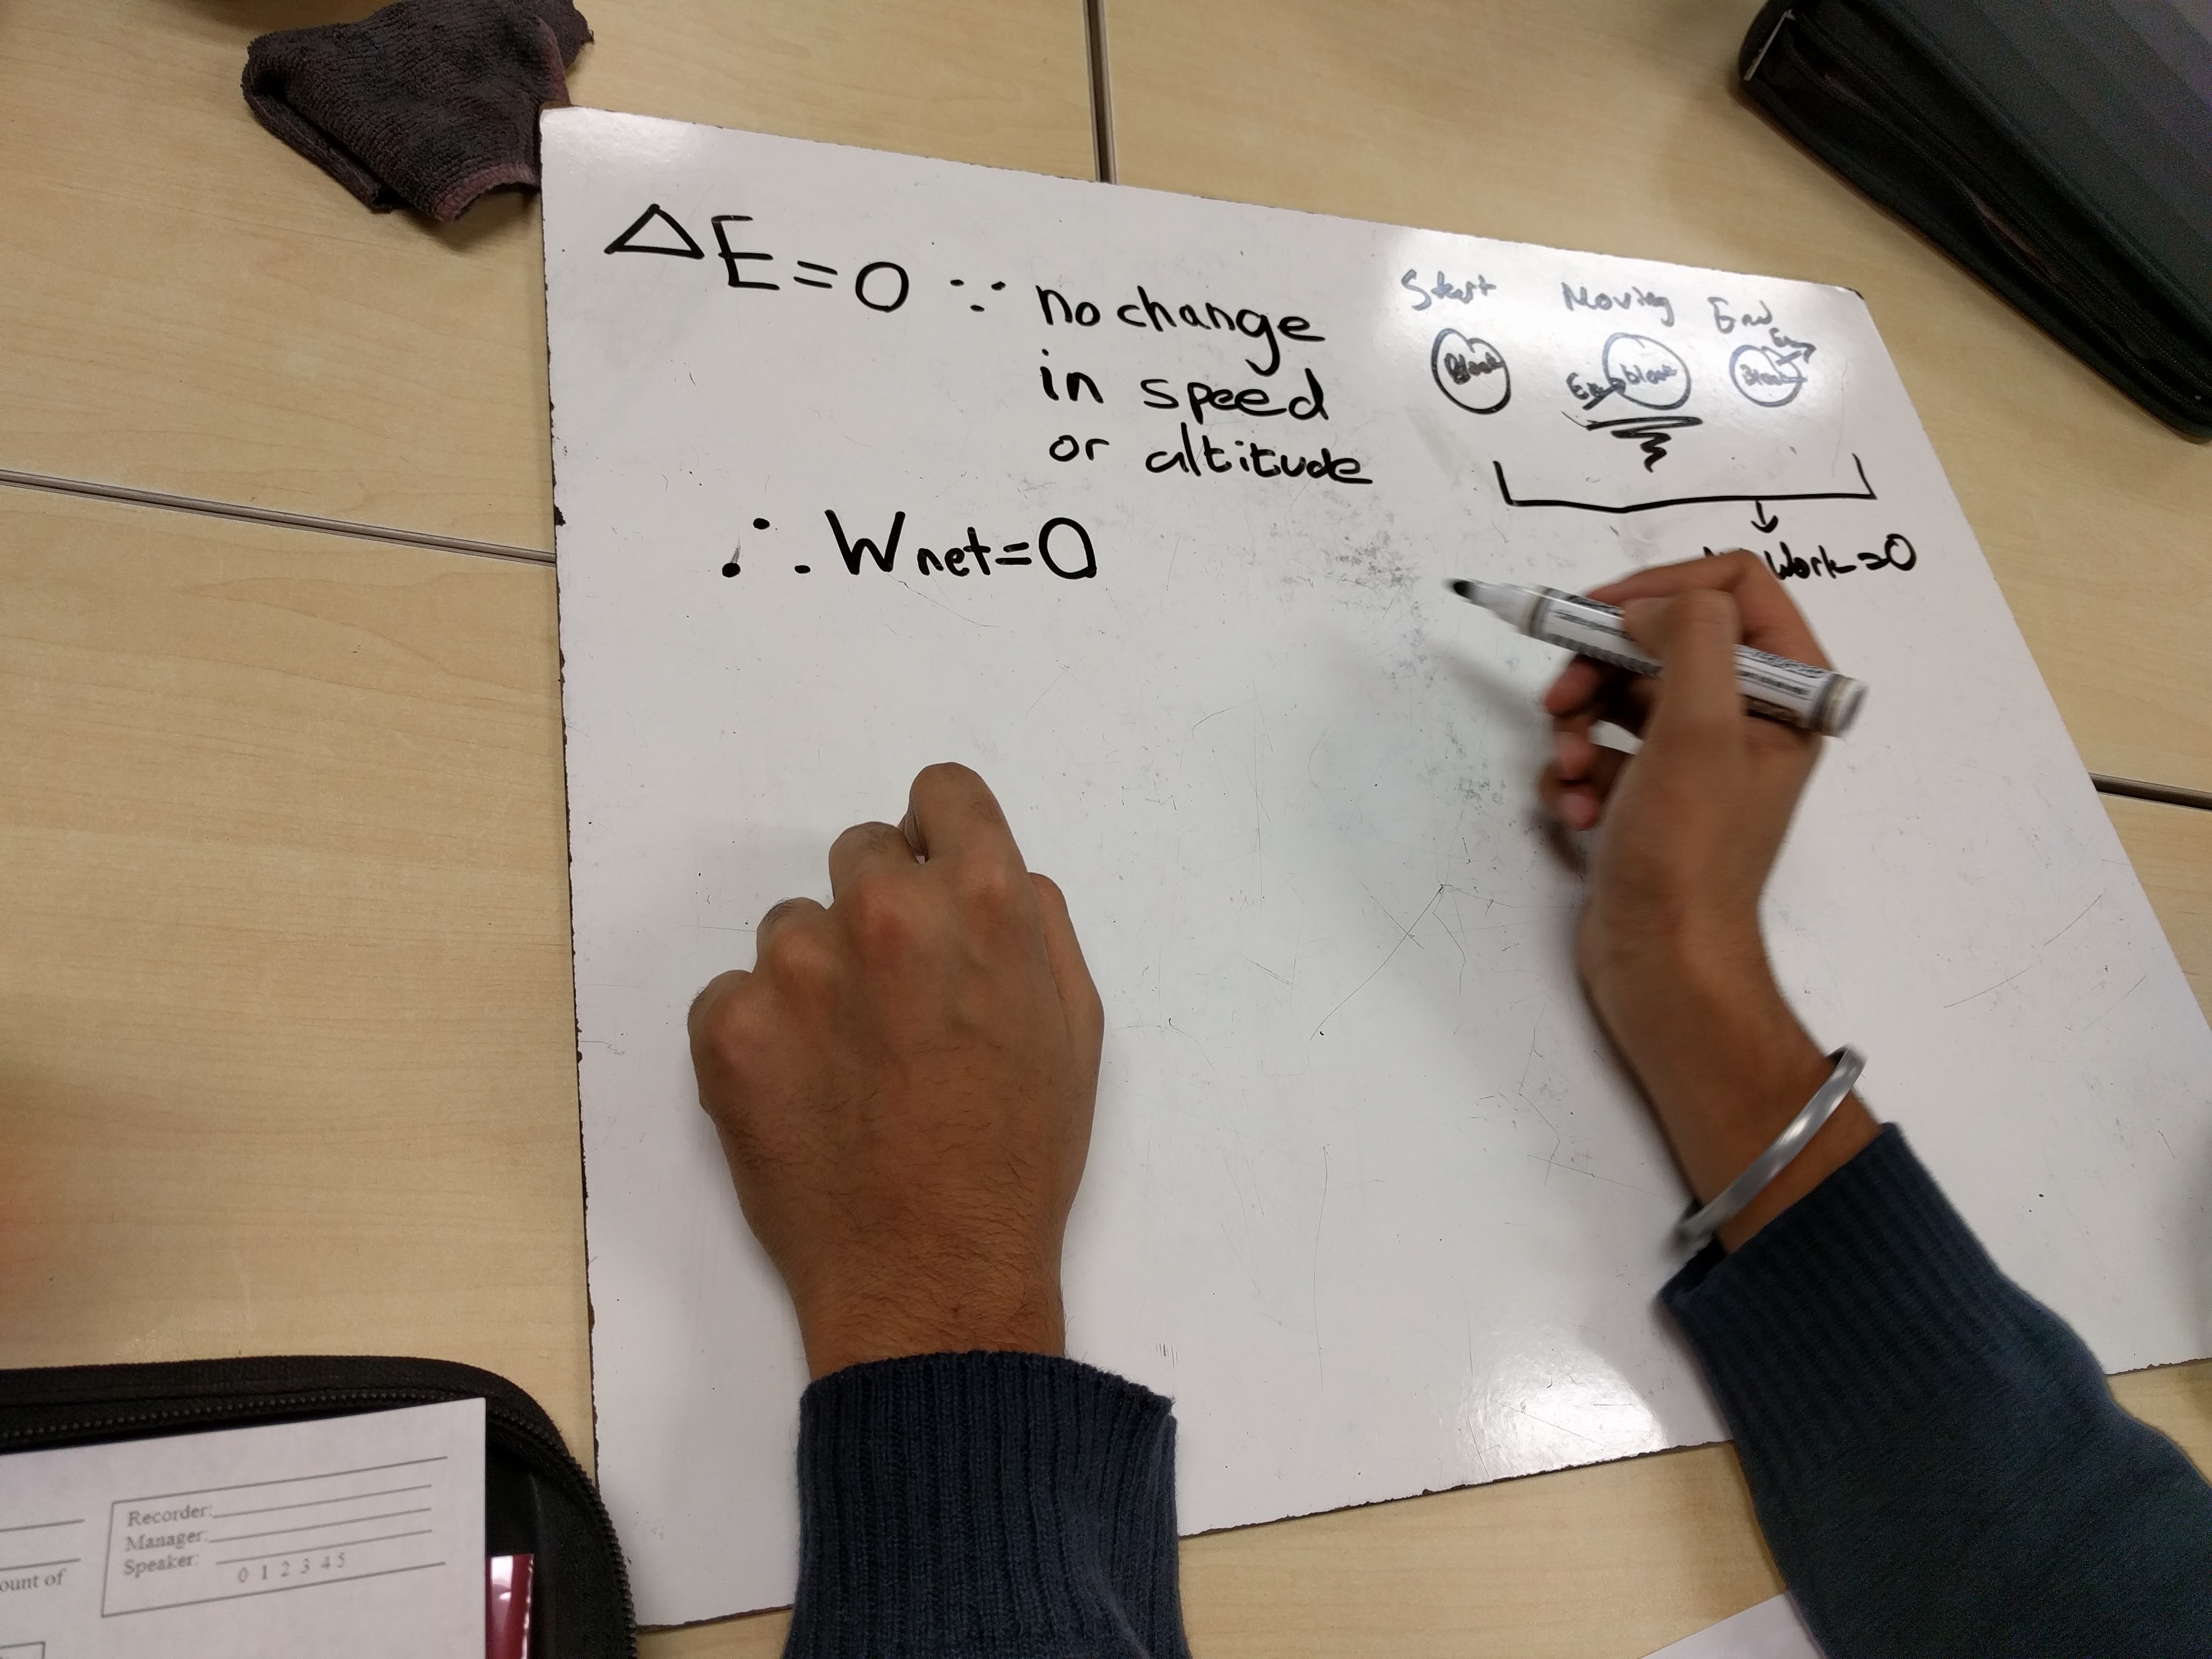 ΔE=0 ∵ no change
in speed
or altitude
∴ Wnet=0
Start Moving End
Block Block Block
Work=0
Recorder:
Manager:
Speaker:
0 1 2 3 4 5
ount of